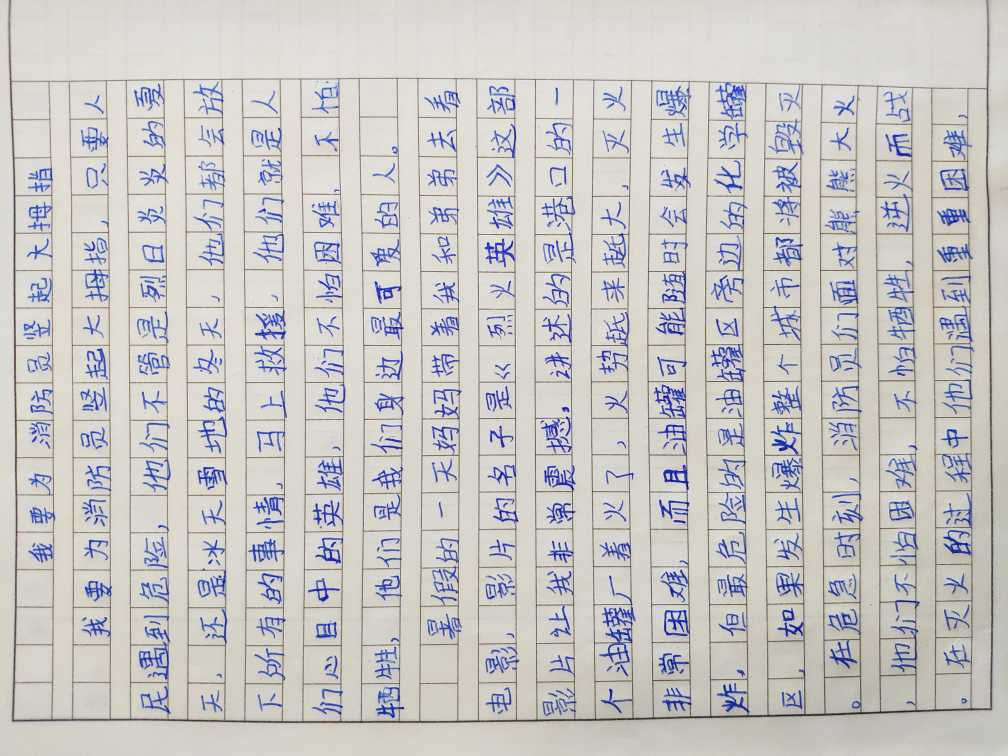 我要为消防员竖起大拇指
我要为消防员竖起大拇指，只要人
民遇到危险，他们不管是烈日炎炎的夏
天，还是冰天雪地的冬天，他们都会放
下所有的事情，马上救援，他们就是人
们心目中的英雄，他们不怕困难，不怕
牺牲，他们是我们身边最可爱的人。
暑假的一天妈妈带着我和弟弟去看
电影，影片的名子是《烈火英雄》这部
影片让我非常震撼，讲述的是港口的一
个油罐厂着火了，火势越来越大，灭火
非常困难，而且油罐可能随时会发生爆
炸，但最危险的是油罐区旁边的化学罐
区，如果发生爆炸整个城市都将被毁灭
。在危急时刻，消防员们面对熊熊大火
，他们不怕困难，不怕牺牲，逆火而战
。在灭火的过程中他们遇到重重困难，